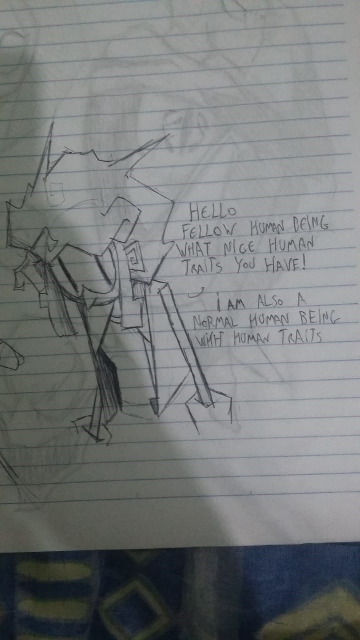 HELLO
FELLOW HUMAN BEING
WHAT NICE HUMAN
TRAITS YOU HAVE!
I AM ALSO A
NORMAL HUMAN BEING
WIHT HUMAN TRAITS